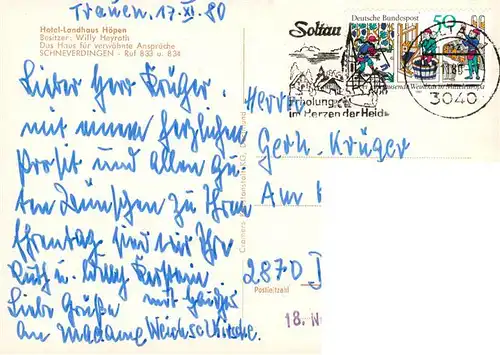 Trauen, 17. XI. 80
Hotel-Landhaus Höpen
Besitzer: Willy Heyroth
Das Haus für verwöhnte Ansprüche
SCHNEVERDINGEN - Ruf 833 u. 834
Lieber Herr Krüger.
mit einem herzlichen
Prosit und allen gu-
ten Wünschen zu Ihrem
Ehrentag sind wir Ihre
Ruth u. Willy
Liebe Grüße mit
an Madame Weichselkirsche.
Soltau
Erholung
im Herzen der Heide
Deutsche Bundespost
50
tausend Weinbau in Mitteleuropa
3040
Herrn
Gerh. Krüger
Am
2870
Postleitzahl
18. N